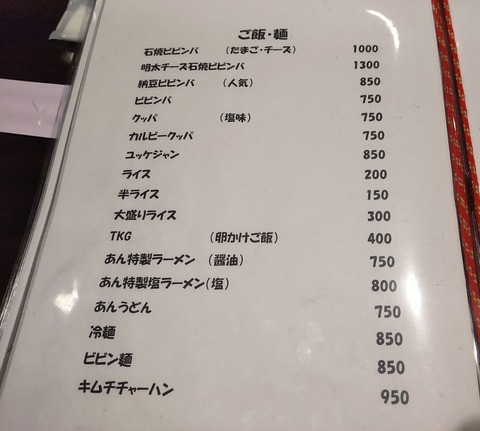 ご飯・麺
石焼ビビンバ (たまご・チーズ) 1000
明太チーズ石焼ビビンバ 1300
納豆ビビンバ (人気) 850
ビビンバ 750
クッパ (塩味) 750
カルビークッパ 750
ユッケジャン 850
ライス 200
半ライス 150
大盛りライス 300
TKG (卵かけご飯) 400
あん特製ラーメン (醤油) 750
あん特製塩ラーメン(塩) 800
あんうどん 750
冷麺 850
ビビン麺 850
キムチチャーハン 950